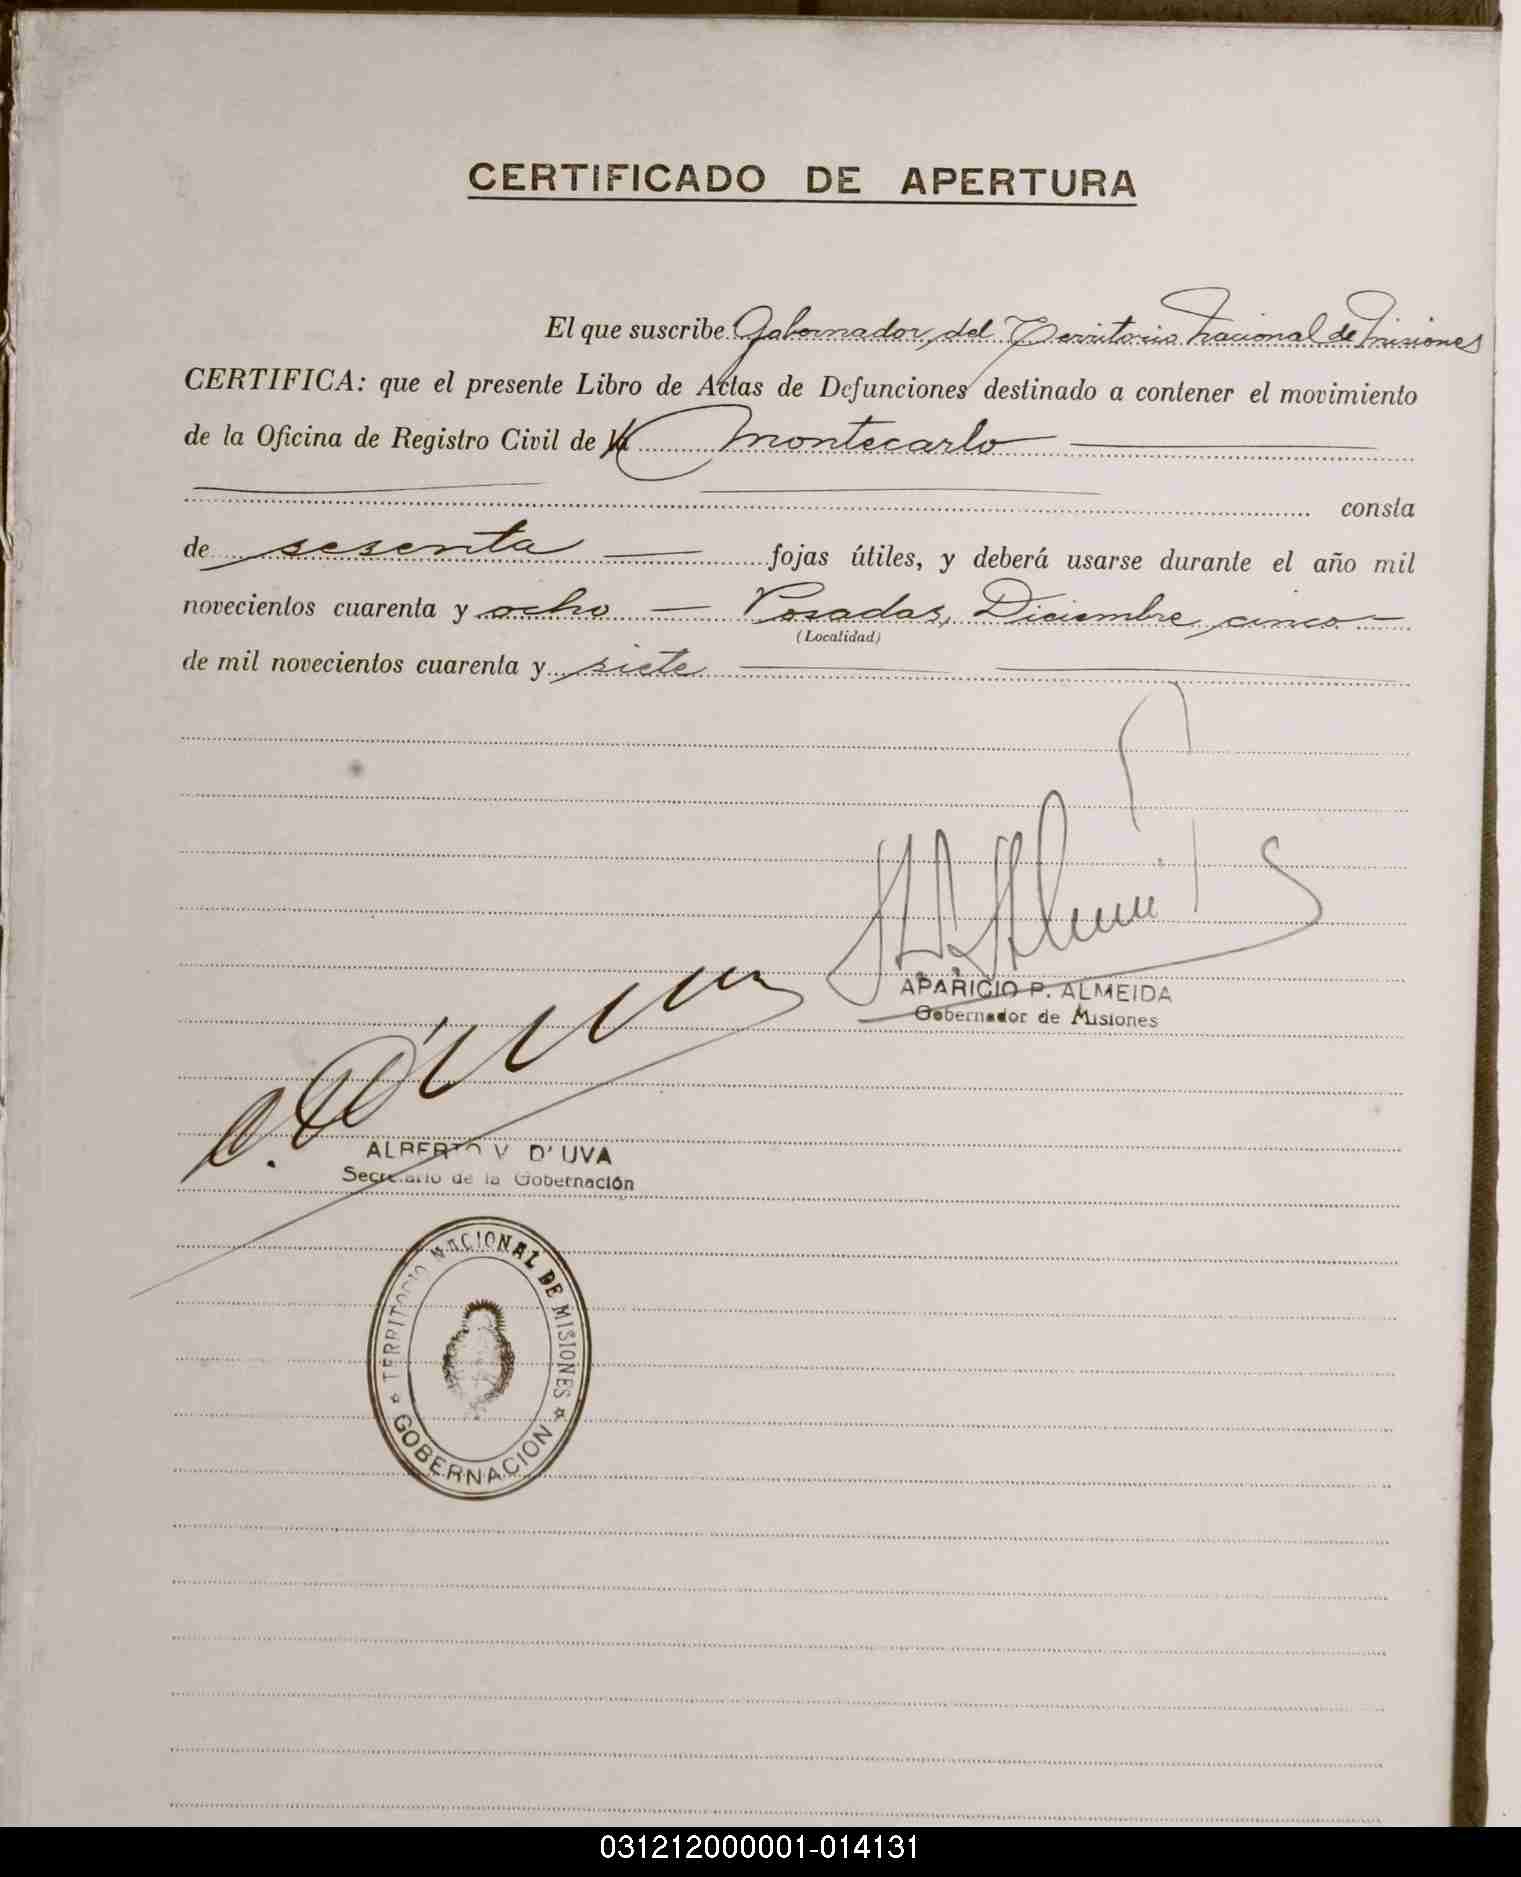 CERTIFICADO DE APERTURA
El que suscribe Gobernador del Territorio Nacional de Misiones
CERTIFICA: que el presente Libro de Actas de Defunciones destinado a contener el movimiento
de la Oficina de Registro Civil de la Montecarlo
consta
de sesenta fojas útiles, y deberá usarse durante el año mil
novecientos cuarenta y ocho Posadas, Diciembre cinco
(Localidad)
de mil novecientos cuarenta y siete
APARICIO P. ALMEIDA
Gobernador de Misiones
ALBERTO V. D'UVA
Secretario de la Gobernación
TERRITORIO NACIONAL DE MISIONES
GOBERNACION
031212000001-014131